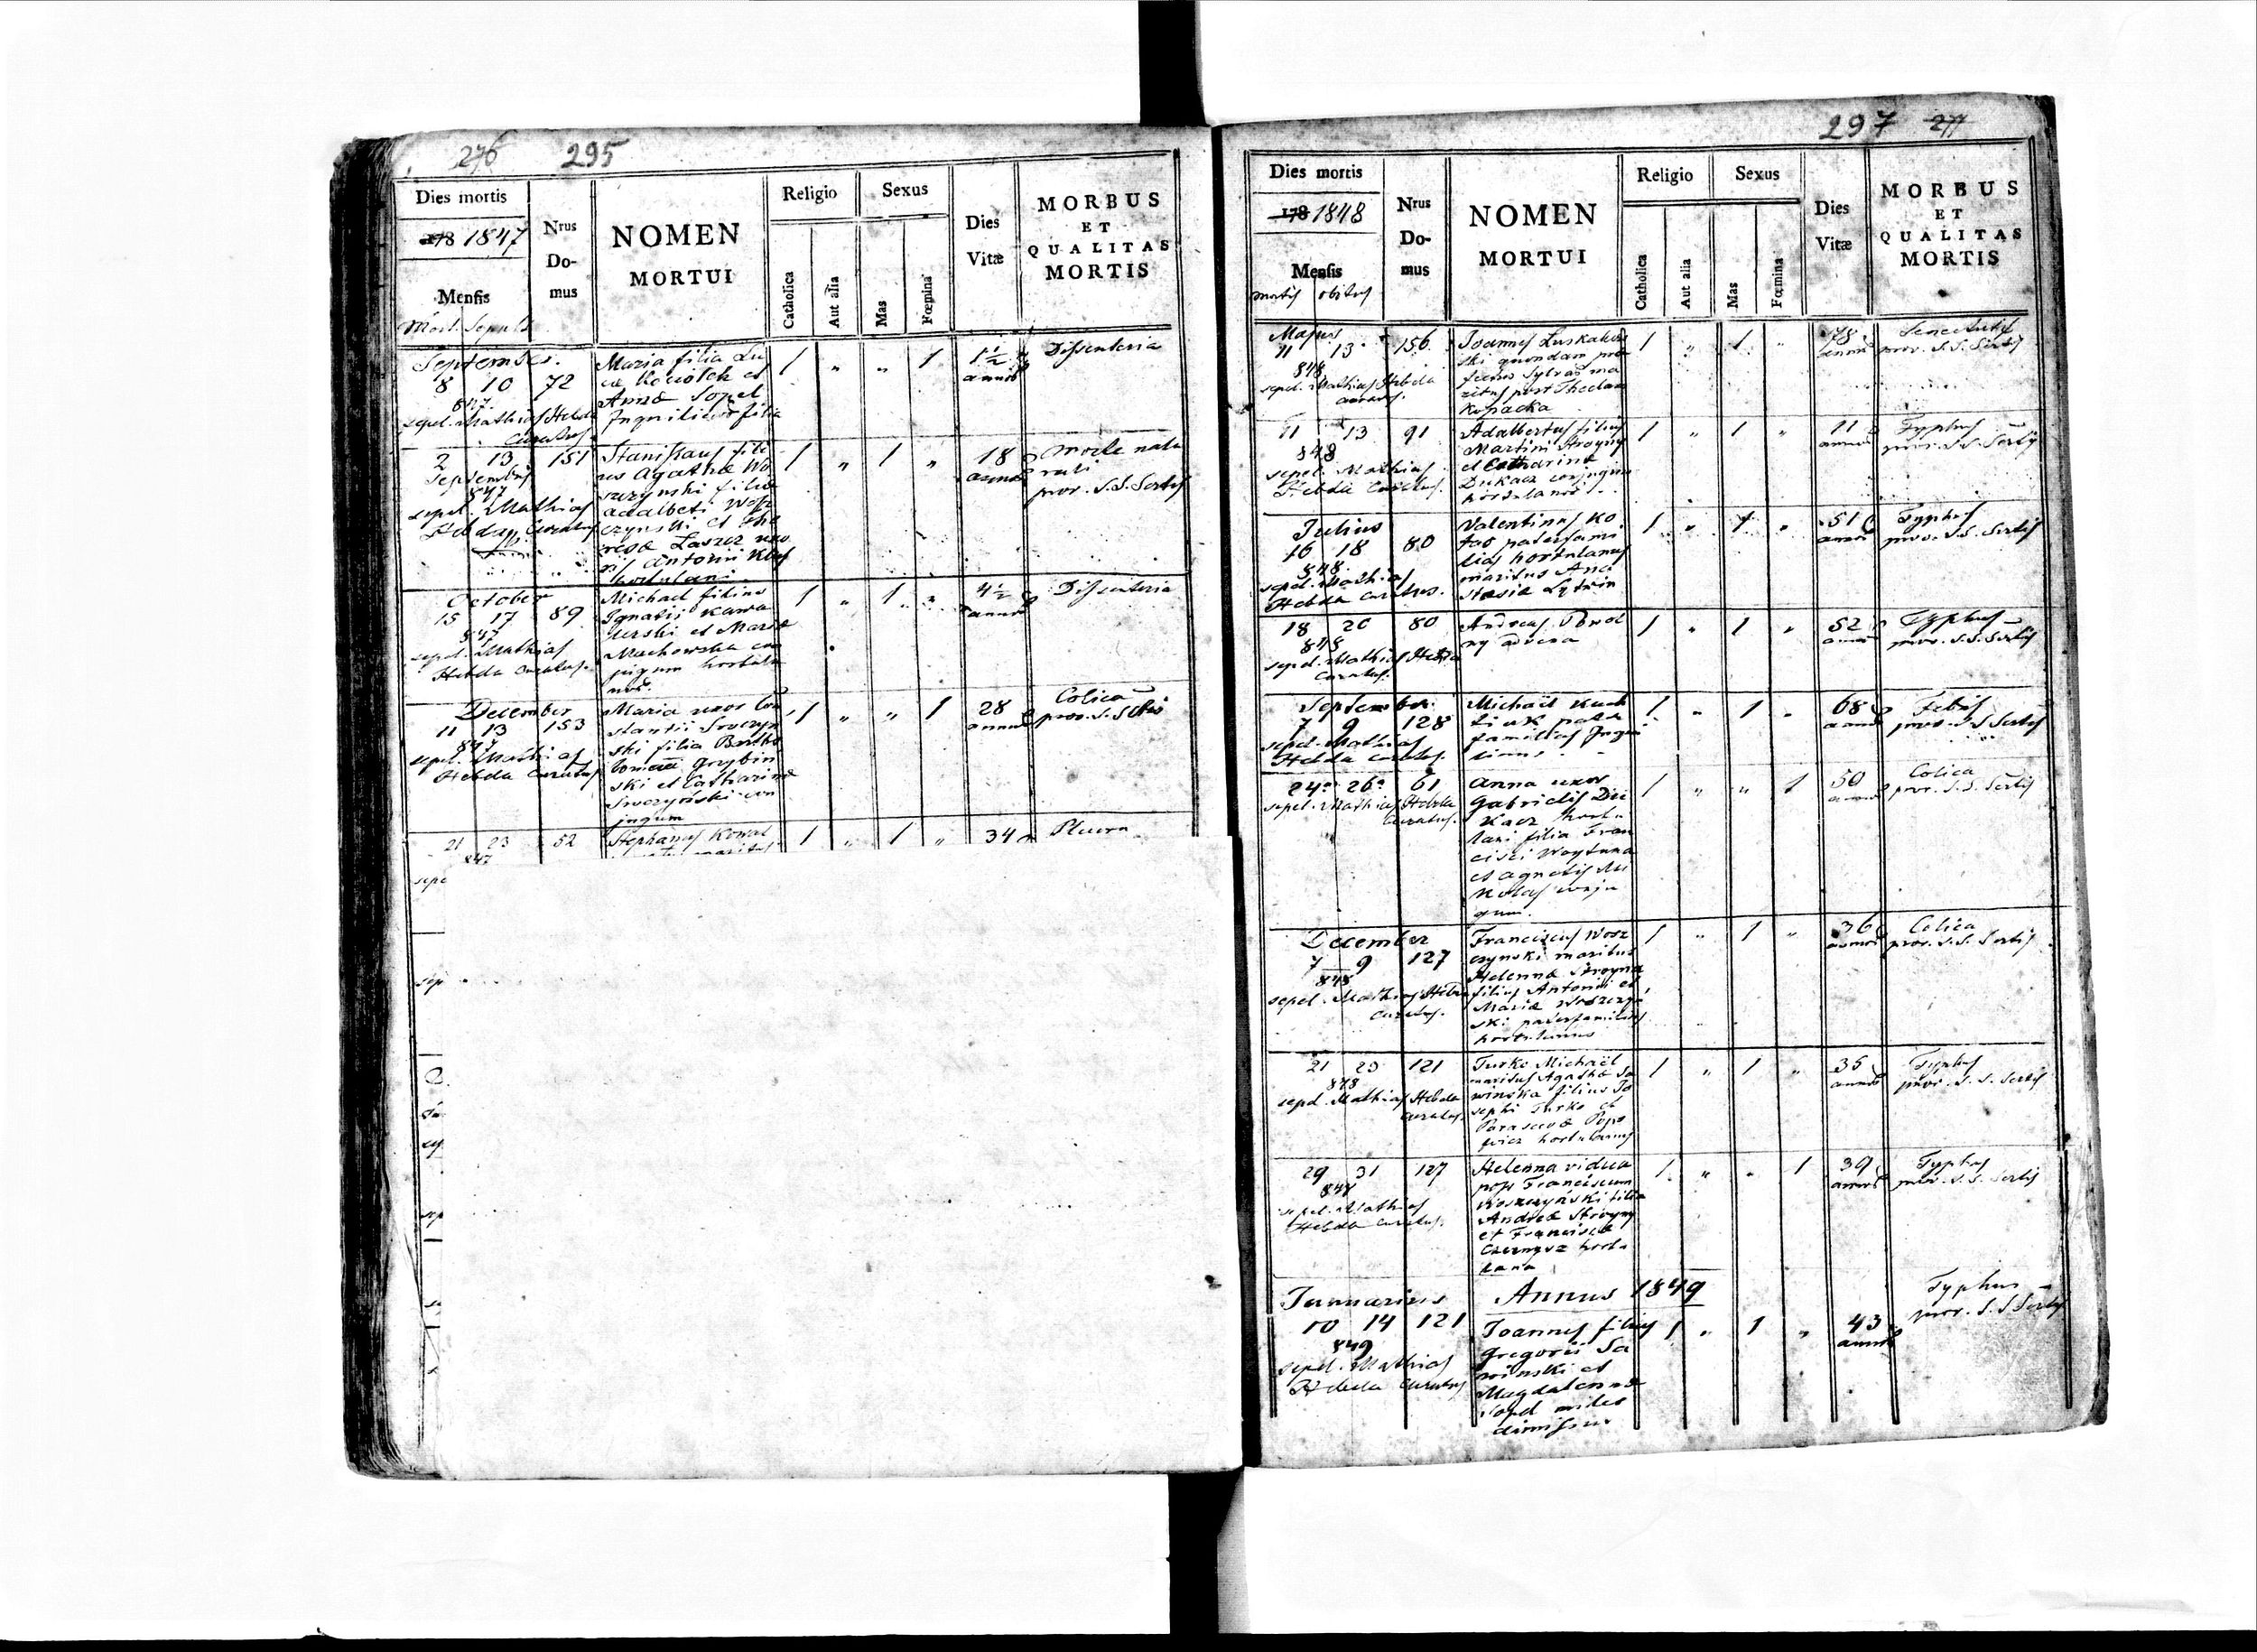 276 295
Dies mortis
178 1847
Mensis
Mort. Sepult.
Nrus
Do-
mus
NOMEN
MORTUI
Religio
Catholica
Aut alia
Sexus
Mas
Fœmina
Dies
Vitæ
MORBUS
ET
QUALITAS
MORTIS
September
8 10 72
847
sepel. Mathias Hebda
Curatus.
Maria filia Lu
Anna Sopel
Inquilinor filia
1 " " 1
1 1/2
annor
Dissenteria
2 13 151
Septembris
847
sepel. Mathias
Hebda Curatus
Stanislaus fili
us Agathæ Wo
szczynski filiæ
Adalberti Wosz
czynski et The
resæ Laszcz uxo
ris Antonii
hortulani
1 " 1 "
18
annor
morte natu
rali
prov. S.S. Sertis
October
15 17 89
847
sepel. Mathias
Hebda Curatus.
Michael filius
Ignatii Kawa
et Mariæ
Machowska con
jugum hortula
nor.
1 " 1 "
4 1/2
annor
Dissenteria
December
11 13 153
847
sepel. Mathias
Hebda Curatus
Maria uxor Con
stantii
ski filia Bartho
lomæi Grzybin
ski et Catharinæ
con
jugum
1 " " 1
28
annor
Colica
21 23 52
847
sepe
Stephanus Kowal
maritus
1 " 1 "
34
Pleura
297 277
Dies mortis
178 1848
Mensis
mortis obitus
Nrus
Do-
mus
NOMEN
MORTUI
Religio
Catholica
Aut alia
Sexus
Mas
Fœmina
Dies
Vitæ
MORBUS
ET
QUALITAS
MORTIS
Majus
11 13 156
848
sepel. Mathias Hebda
Curatus.
Joannes Luskalow
ski quondam præ
fectus sylvar ma
ritus post Theclam
Kopacka
1 " 1 "
78
annor
Senectutis
prov. S.S. Sertis
11 13 91
848
sepel. Mathias
Hebda Curatus.
Adalbertus filius
Martini Stroyny
et Catharinæ
Dukacz conjugum
hortulanor
1 " 1 "
11
annor
Typhus
prov. S.S. Sertis
Julius
16 18 80
848.
sepel. Mathias
Hebda Curatus.
Valentinus Ko
tas paterfami
lias hortulanus
maritus Ana
stasiæ
1 " 1 "
51
annor
Typhus
prov. S.S. Sertis
18 20 80
848
sepel. Mathias Hebda
Curatus.
Andreas
ny advena
1 " 1 "
52
annor
Typhus
prov. S.S. Sertis
September
7 9 128
sepel. Mathias
Hebda Curatus.
Michaël Kuch
pater
familias Inqui
linus.
1 " 1 "
68
annor
Febris
prov. S.S. Sertis
24 26 61
sepel. Mathias Hebda
Curatus.
Anna uxor
Gabrielis Du
kacz hortu
lani filia Fran
cisci Woytuna
et Agnetis Mi
kolas conju
gum.
1 " " 1
50
annor
Colica
prov. S.S. Sertis
December
7 9 127
848
sepel. Mathias Hebda
Curatus.
Franciscus Wosz
czynski maritus
Helennæ Stroyna
filius Antonii et
Mariæ Woszczyn
ski paterfamilias
hortulanus
1 " 1 "
36
annor
Colica
prov. S.S. Sertis
21 23 121
848
sepel. Mathias Hebda
Curatus.
Turko Michaël
maritus Agathæ Sa
winska filius Jo
sephi Turko et
Parascevæ Popo
wicz hortulanus
1 " 1 "
35
annor
Typhus
prov. S.S. Sertis
29 31 127
848
sepel. Mathias
Hebda Curatus.
Helenna vidua
post Franciscum
Woszczyński filia
Andreæ Stroyny
et Franciscæ
hortu
lana
1 " " 1
39
annor
Typhus
prov. S.S. Sertis
Annus 1849
Januarius
10 14 121
849
sepel. Mathias
Hebda Curatus
Joannes filius
Gregorii Sa
winski et
Magdalennæ
Sopel miles
dimissus
1 " 1 "
43
annor
Typhus
prov. S.S. Sertis